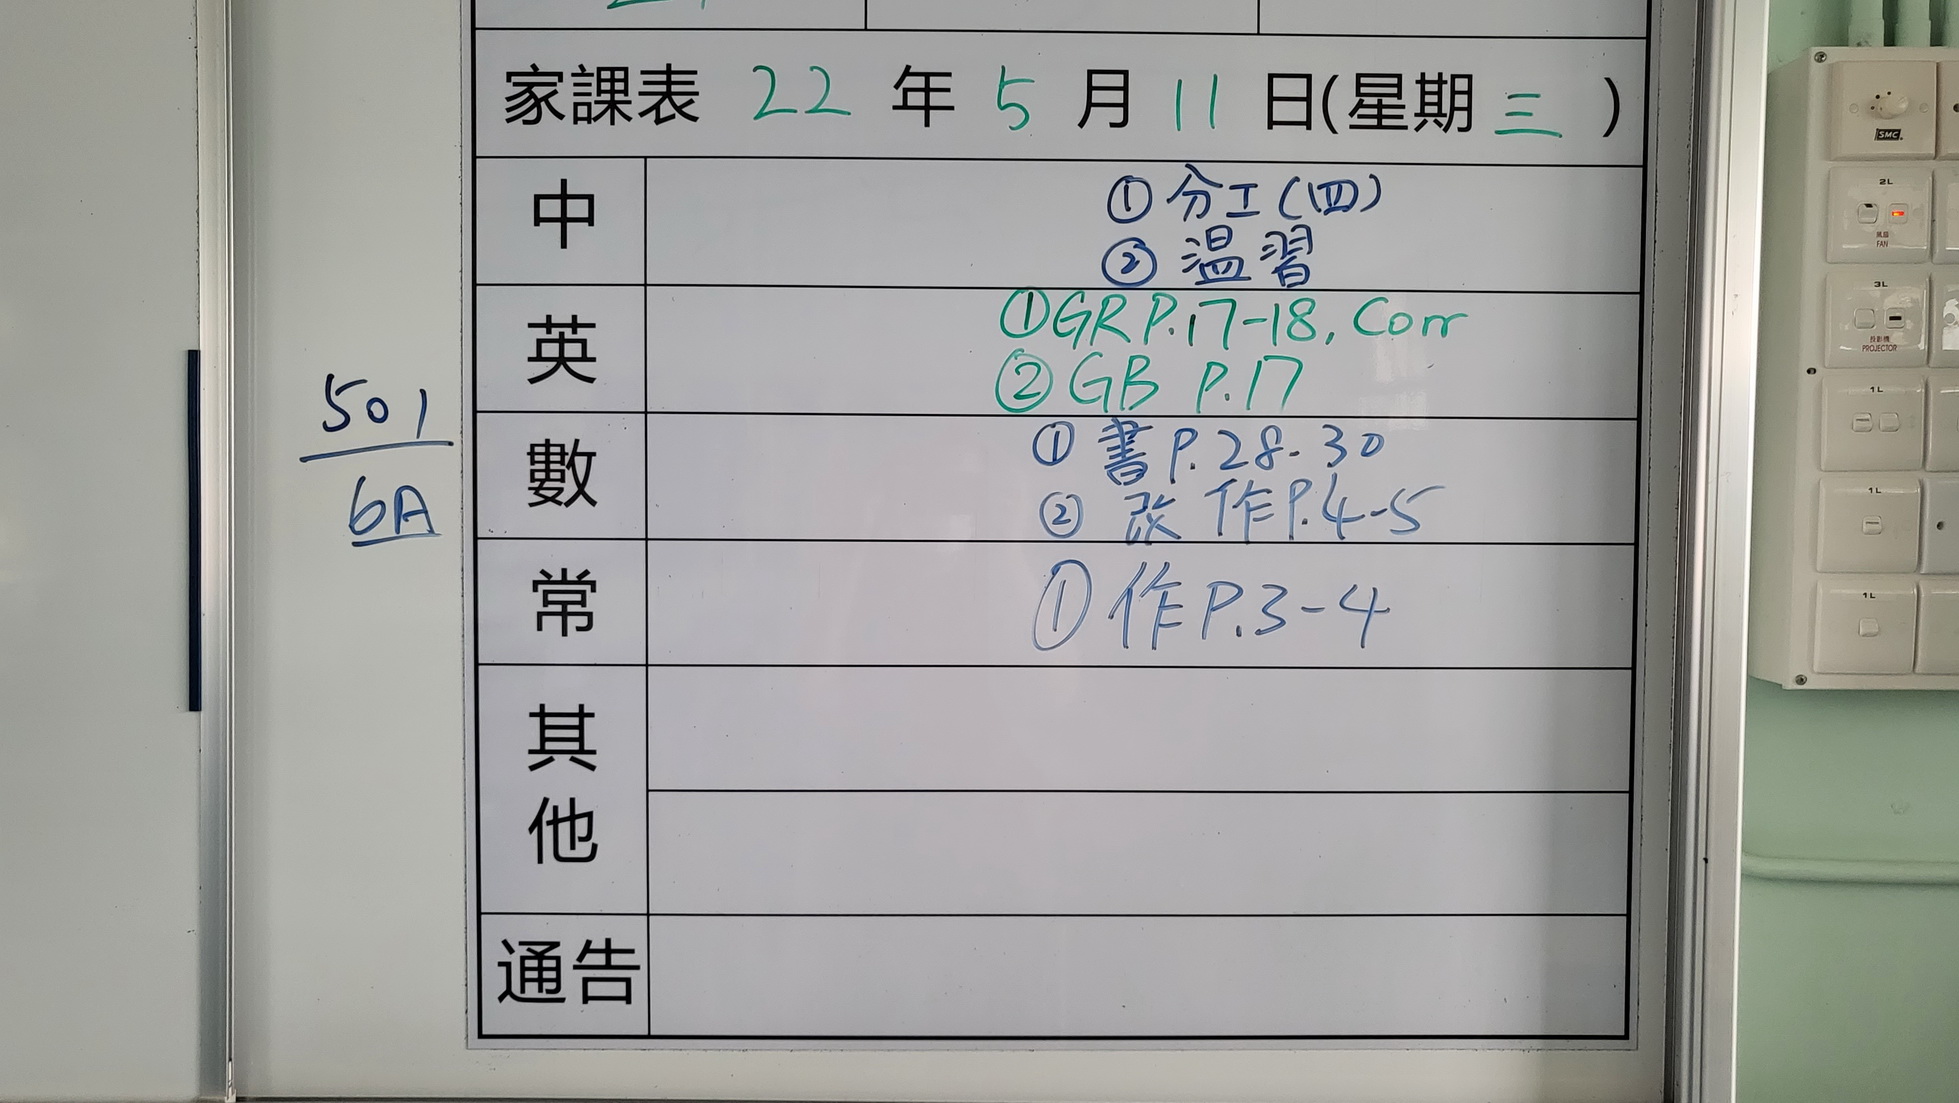 家課表 22 年 5 月 11 日(星期 三 )
中
① 分工(四)
② 温習
英
①GR P.17-18, Corr
② GB P.17
數
① 書P.28-30
② 改作P.4-5
常
① 作P.3-4
其他
通告
501
6A
SMC
2L
風扇
FAN
3L
投影機
PROJECTOR
1L
1L
1L